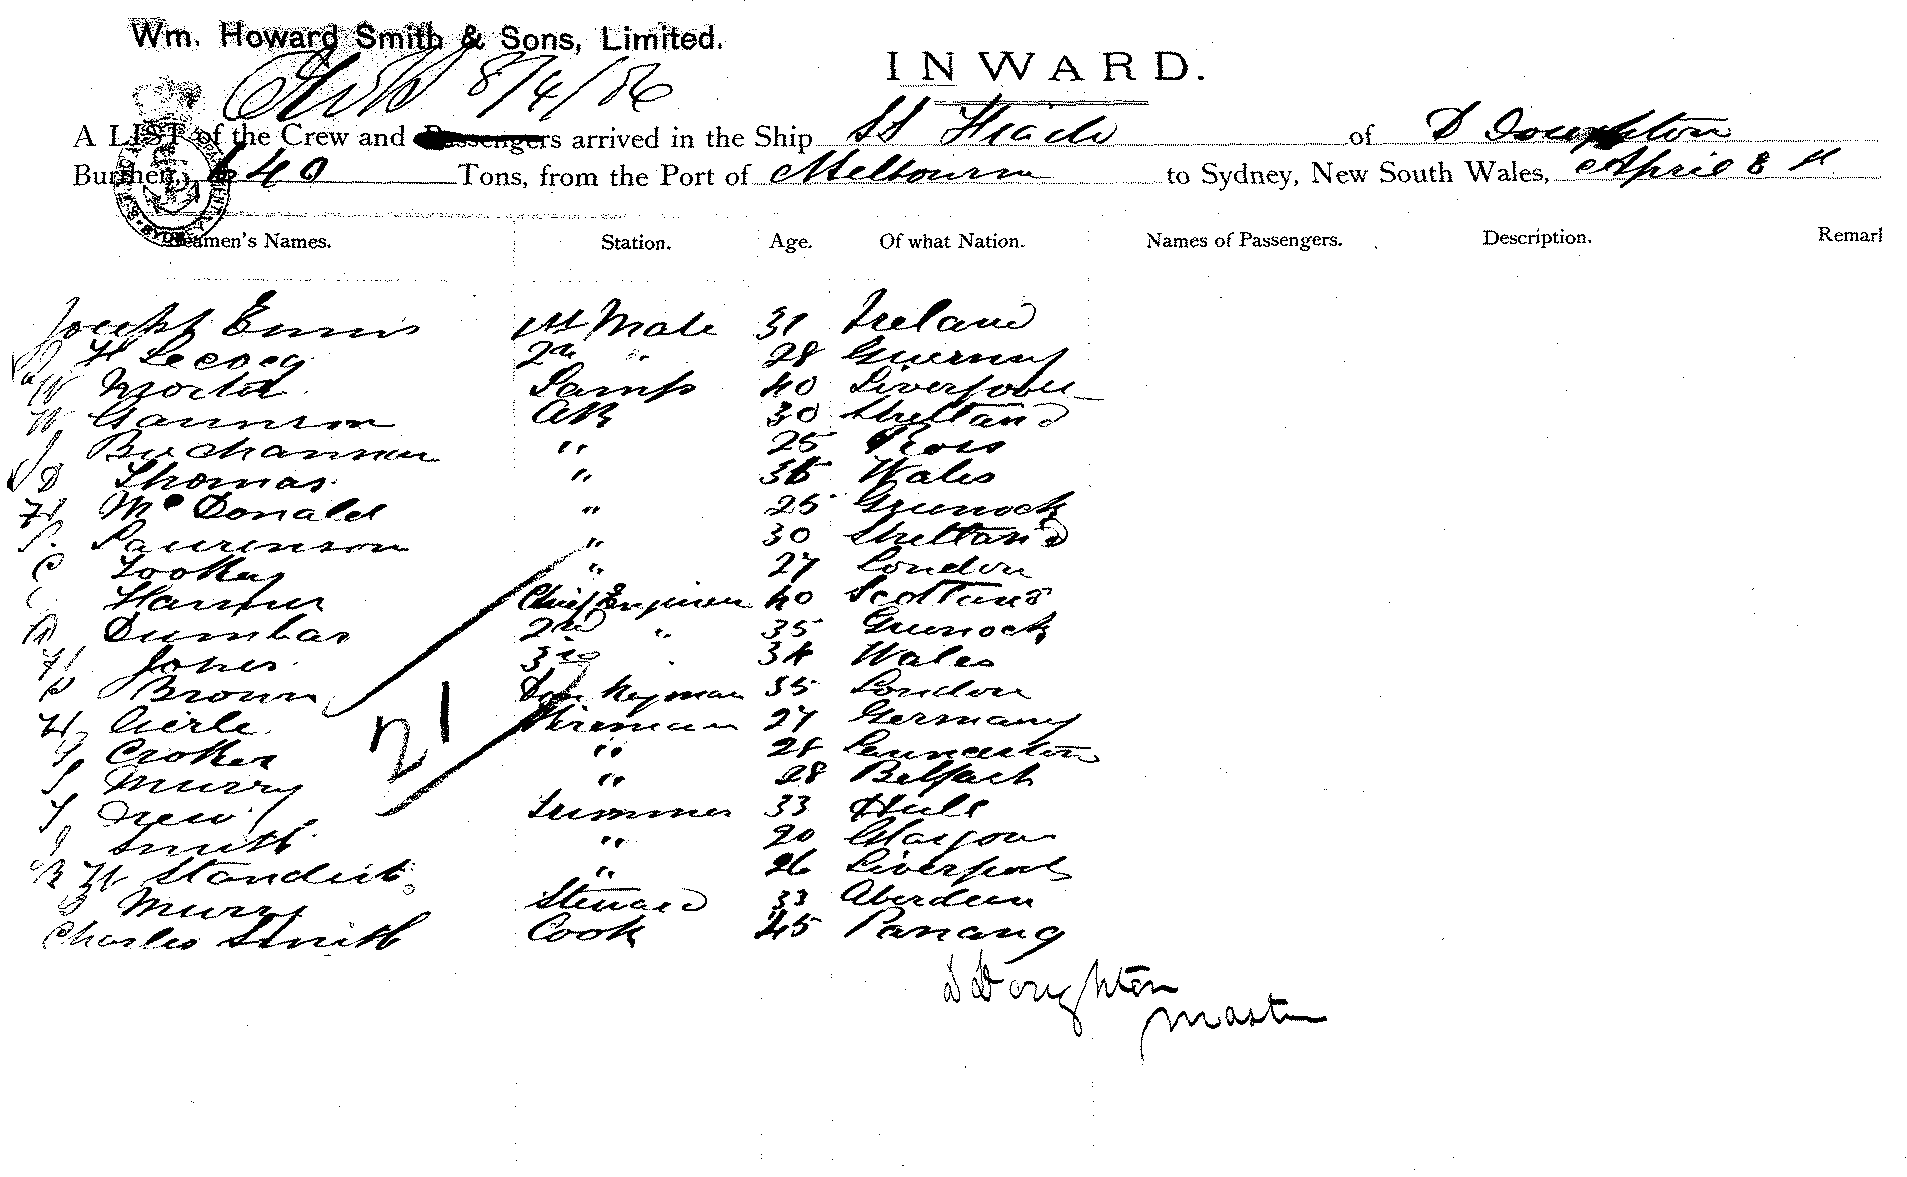 Wm. Howard Smith & Sons, Limited.
INWARD.
8/4/86
A LIST of the Crew and Passengers arrived in the Ship SS of D Doughton
Burthen, 640 Tons, from the Port of Melbourne to Sydney, New South Wales, April 8th
Seamen's Names. Station. Age. Of what Nation. Names of Passengers. Description. Remar
Joseph Ennis 1st Mate 31 Ireland
H Lecocq 2nd " 28 Guernsey
W Lamps 40 Liverpool
W AB 30 Shetland
J Buchannen " 25 Ross
D Thomas " Wales
McDonald " 25 Greenock
Laurenson " 30 Shetland
C Tookey " 27 London
Chief Engineer 40 Scotland
Dunbar 2nd " 35 Greenock
H Jones 3rd Wales
Brown Donkeyman 35 London
H Gierle Fireman 27 Germany
Croker " 28 Launceston
Murry " 28 Belfast
T New Trimmer 33 Hull
J Smith " 20 Glasgow
Standish " 26 Liverpool
Murry Steward 33 Aberdeen
Charles Smith Cook 45 Panang
21
D Doughton
Master